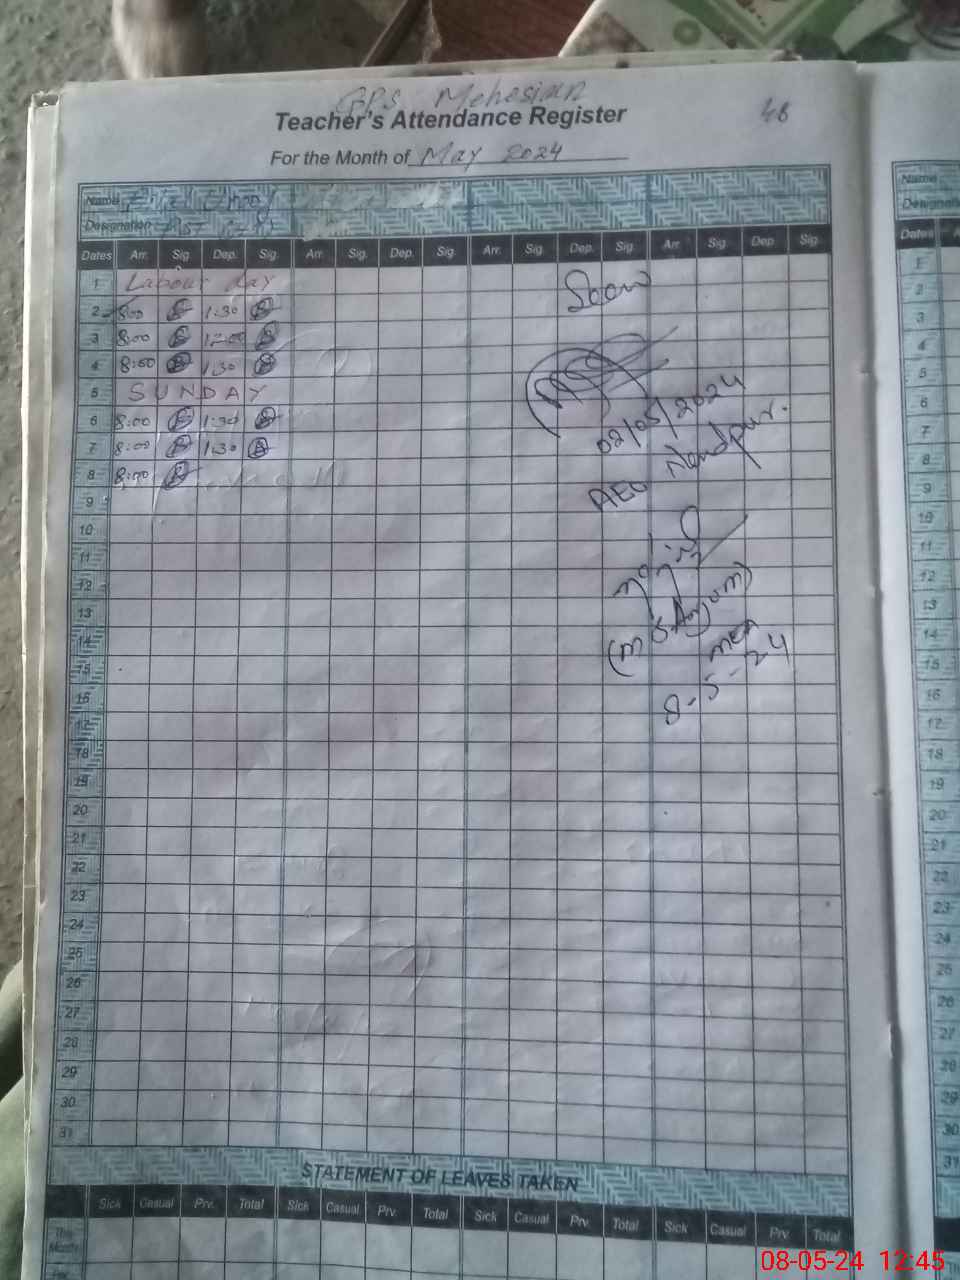 GPS Mehesian
Teacher's Attendance Register
48
For the Month of May 2024
Name
Designation PST
Dates Arr. Sig. Dep. Sig. Arr. Sig. Dep. Sig. Arr. Sig. Dep. Sig. Arr. Sig. Dep. Sig.
1 Labour day
2 8:00 1:30
3 8:00 12:00
4 8:00 1:30
5 SUNDAY
6 8:00 1:30
7 8:00 1:30
8 8:00
9
10
11
12
13
14
15
16
17
18
19
20
21
22
23
24
25
26
27
28
29
30
31
Seen
02/05/2024
AEO Nandpur.
(M S Anjum)
MEA
8-5-24
STATEMENT OF LEAVES TAKEN
Sick Casual Prv. Total Sick Casual Prv. Total Sick Casual Prv. Total Sick Casual Prv. Total
This Month
Name
Designation
Dates
1
2
3
4
5
6
7
8
9
10
11
12
13
14
15
16
17
18
19
20
21
22
23
24
25
26
27
28
29
30
31
08-05-24 12:45